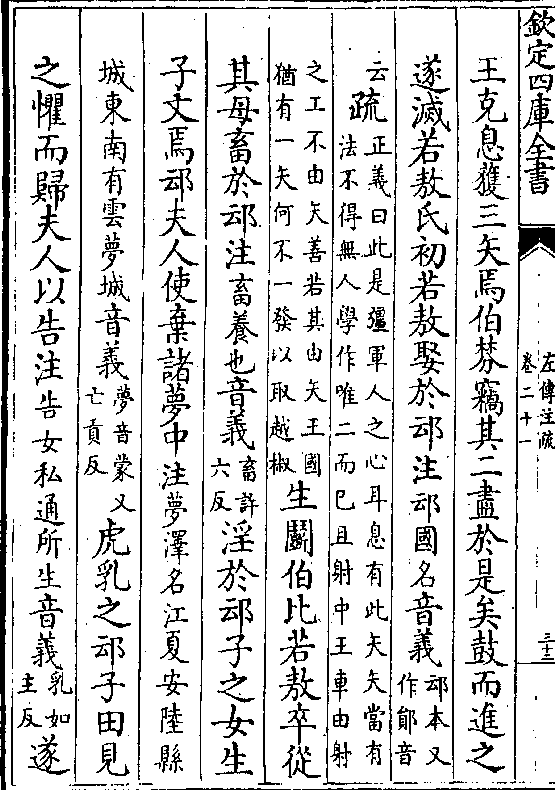 欽定四庫全書
左傳注疏
卷二十一
三十三
王克息獲三矢焉伯棼竊其二盡於是矣鼓而進之
遂滅若敖氏初若敖娶於䢵注䢵國名音義
䢵本又
作鄖音
云疏
正義曰此是彊軍人之心耳息有此矢矢當有
法不得無人學作唯二而已且射中王車由射
之工不由矢善若其由矢王國
猶有一矢何不一發以取越椒
生鬬伯比若敖卒從
其母畜於䢵注畜養也音義
畜許
六反
淫於䢵子之女生
子文焉䢵夫人使棄諸夢中注夢澤名江夏安陸縣
城東南有雲夢城音義
夢音蒙又
亡貢反
虎乳之䢵子田見
之懼而歸夫人以告注告女私通所生音義
乳如
主反
遂